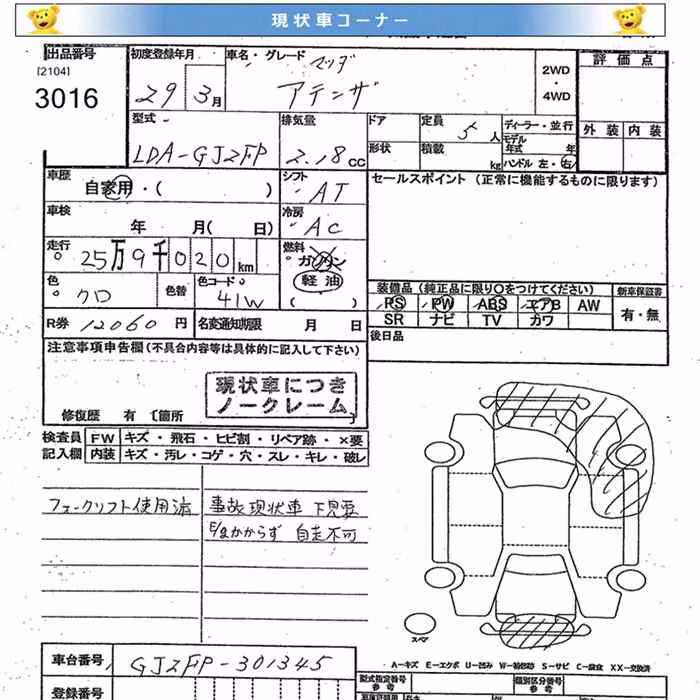 現状車コーナー
出品番号
[2104]
3016
初度登録年月
29 3月
車名・グレード
マツダ
アテンザ
2WD
・
4WD
評価点
外装 内装
型式
LDA-GJ2FP
排気量
2.18cc
ドア
形状
定員 5人
積載 kg
ディーラー・並行
モデル年式 年
ハンドル 左・右
車歴
自家用・( )
シフト
AT
セールスポイント(正常に機能するものに限ります)
車検
年 月(日)
冷房
AC
走行
25万9千020km
燃料
ガソリン
軽油
( )
色
クロ
色替
色コード
41W
装備品(純正品に限り○をつけてください)
新車保証書
PS PW ABS エアB AW
SR ナビ TV カワ
有・無
R券 12060円
名変通知期限 月 日
後日品
注意事項申告欄(不具合内容等は具体的に記入して下さい)
現状車につき
ノークレーム
修復歴 有 〔箇所
検査員
記入欄
FW キズ・飛石・ヒビ割・リペア跡・×要
内装 キズ・汚レ・コゲ・穴・スレ・キレ・破レ
フォークリフト使用済
事故現状車 下見要
E/gかからず 自走不可
スペア
A-キズ E-エクボ U-凹み W-補修跡 S-サビ C-腐食 XX-交換済
車台番号 GJ2FP-301345
登録番号
型式指定番号
参考
類別区分番号
参考